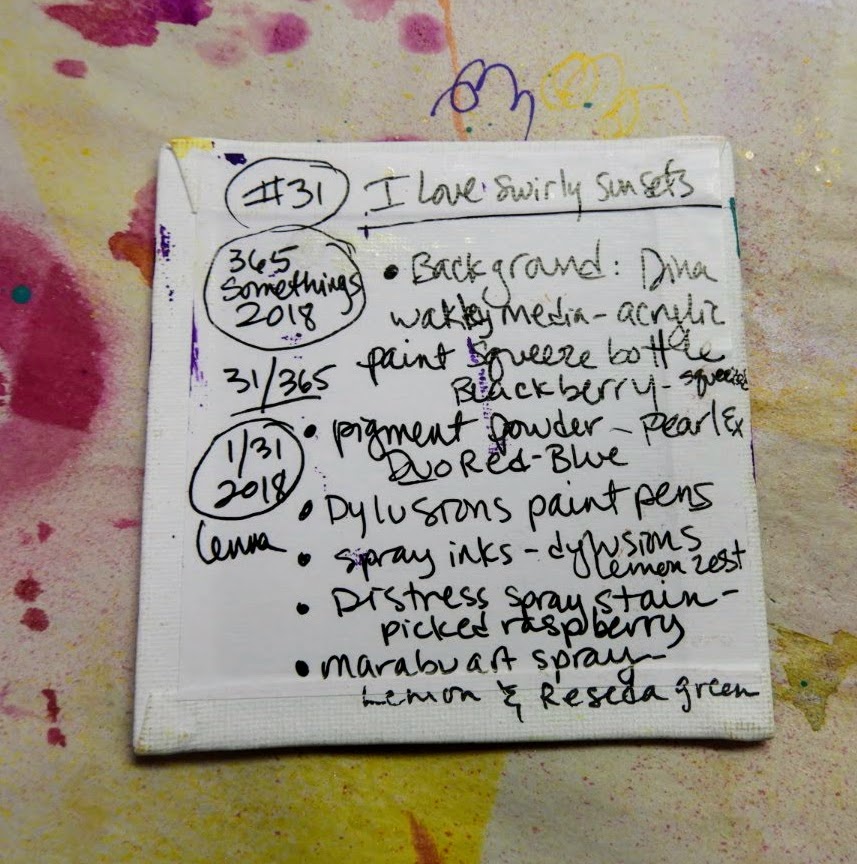 #31 I Love Swirly Sunsets
365
Somethings
2018
31/365
1/31
2018
Lenna
• Background: Dina
wakley media - acrylic
paint squeeze bottle
Blackberry - squeezed
• pigment powder - pearl Ex
Duo Red-Blue
• Dylusions paint pens
• spray inks - dylusions
lemon zest
• Distress spray stain -
picked raspberry
• marabu art spray -
Lemon & Reseda green